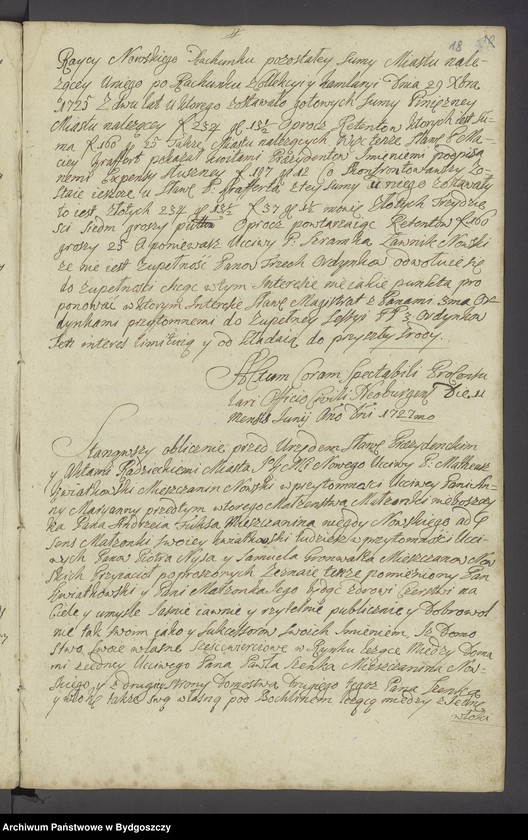 18
Raycy Nowskiego Rachunku pozostałey Sumy Miastu nale-
zący Uniego po Rachunku Kollekcyi y Kamlaryi Dnia 29 Xbra
1725 Z dwu lat Uktorego zostawało gotowych Sumy Pinięzney
Miastu nalezący f 234 gr 13½ Oprocz Retentow Ktorych iest Su-
ma f 166 gr 25 Także Miastu nalezących
ciey Graffert pokazał kwitami Prezydentow Imieniem podpisa
nemi Expensy f 197 gr 12 Co Skonfrontowawszy Zo-
staie ieszcze u Sławę P. Grafferta z tey Sumy u niego Zostawały
to iest Złotych 234 gr 13½ f 37 gr 1½ mowię Złotych Trzydzie
sci Siedm groszy Oprocz powtarzaiąc Retentow f 166
groszy 25 A poniewasz Ucciwy P. Szramka Ławnik Nowski
ze nie iest Zupełność Panow Trzech Ordynkow odwołuie się
do Zupełnosci chcąc w tym Interesie nieiakie punkta pro
ponować w ktorym Interesie Sławę Magistrat z Panami 3ma Or-
dynkami przytomnemi do Zupełney Sessyi PP 3 Ordynkow
ten interes limituią y od kładaią do przyszłey Srody.
Actum Coram Spectabili Proconsu
lari Officio Civili Neoburgen Die 11
Mensis Junij Año Dni 1727mo
Stanąwszy oblicznie przed Urzędem Sławę Prezydenckim
y Aktami Radzieckiemi Miasta J K Mci Nowego Ucciwy P: Matheusz
Kwiatkowski Mieszczanin Nowski w przytomnosci Ucciwey Pani An-
ny Maryanny przedtym wtorego Małzenstwa Małzonki nieboszczy
ka Pana Andrzeia Fuksa Mieszczanina niegdy Nowskiego ad P
sens Małzonki Swoiey Kwiatkowski tudziesz w przytomnosci Ucci-
wych Panow Piotra Nysa y Samuela Gronwalta Mieszczanow Now
skich Przyiacioł poproszonych Zeznaie tenze pomieniony Pan
Kwiatkowski y Pani Małzonka Jego będąc Zdrowi Czerstwi na
Ciele y umysle Jasnie iawnie y rzytelnie publicznie y Dobrowol
nie tak Swoim jako y Sukcessorow Swoich Imieniem, Jz Domo
stwo Swoie własne w Rynku lezące Między Doma
mi ziedney Ucciwego Pana Pawła Szenka Mieszczanina Now-
skiego y z drugiey Strony Domostwa Drugiego tegoz Pana Szenka
y włokę także swą własną pod Bochlinem lezącą między z Jedney
włoki
Archiwum Państwowe w Bydgoszczy